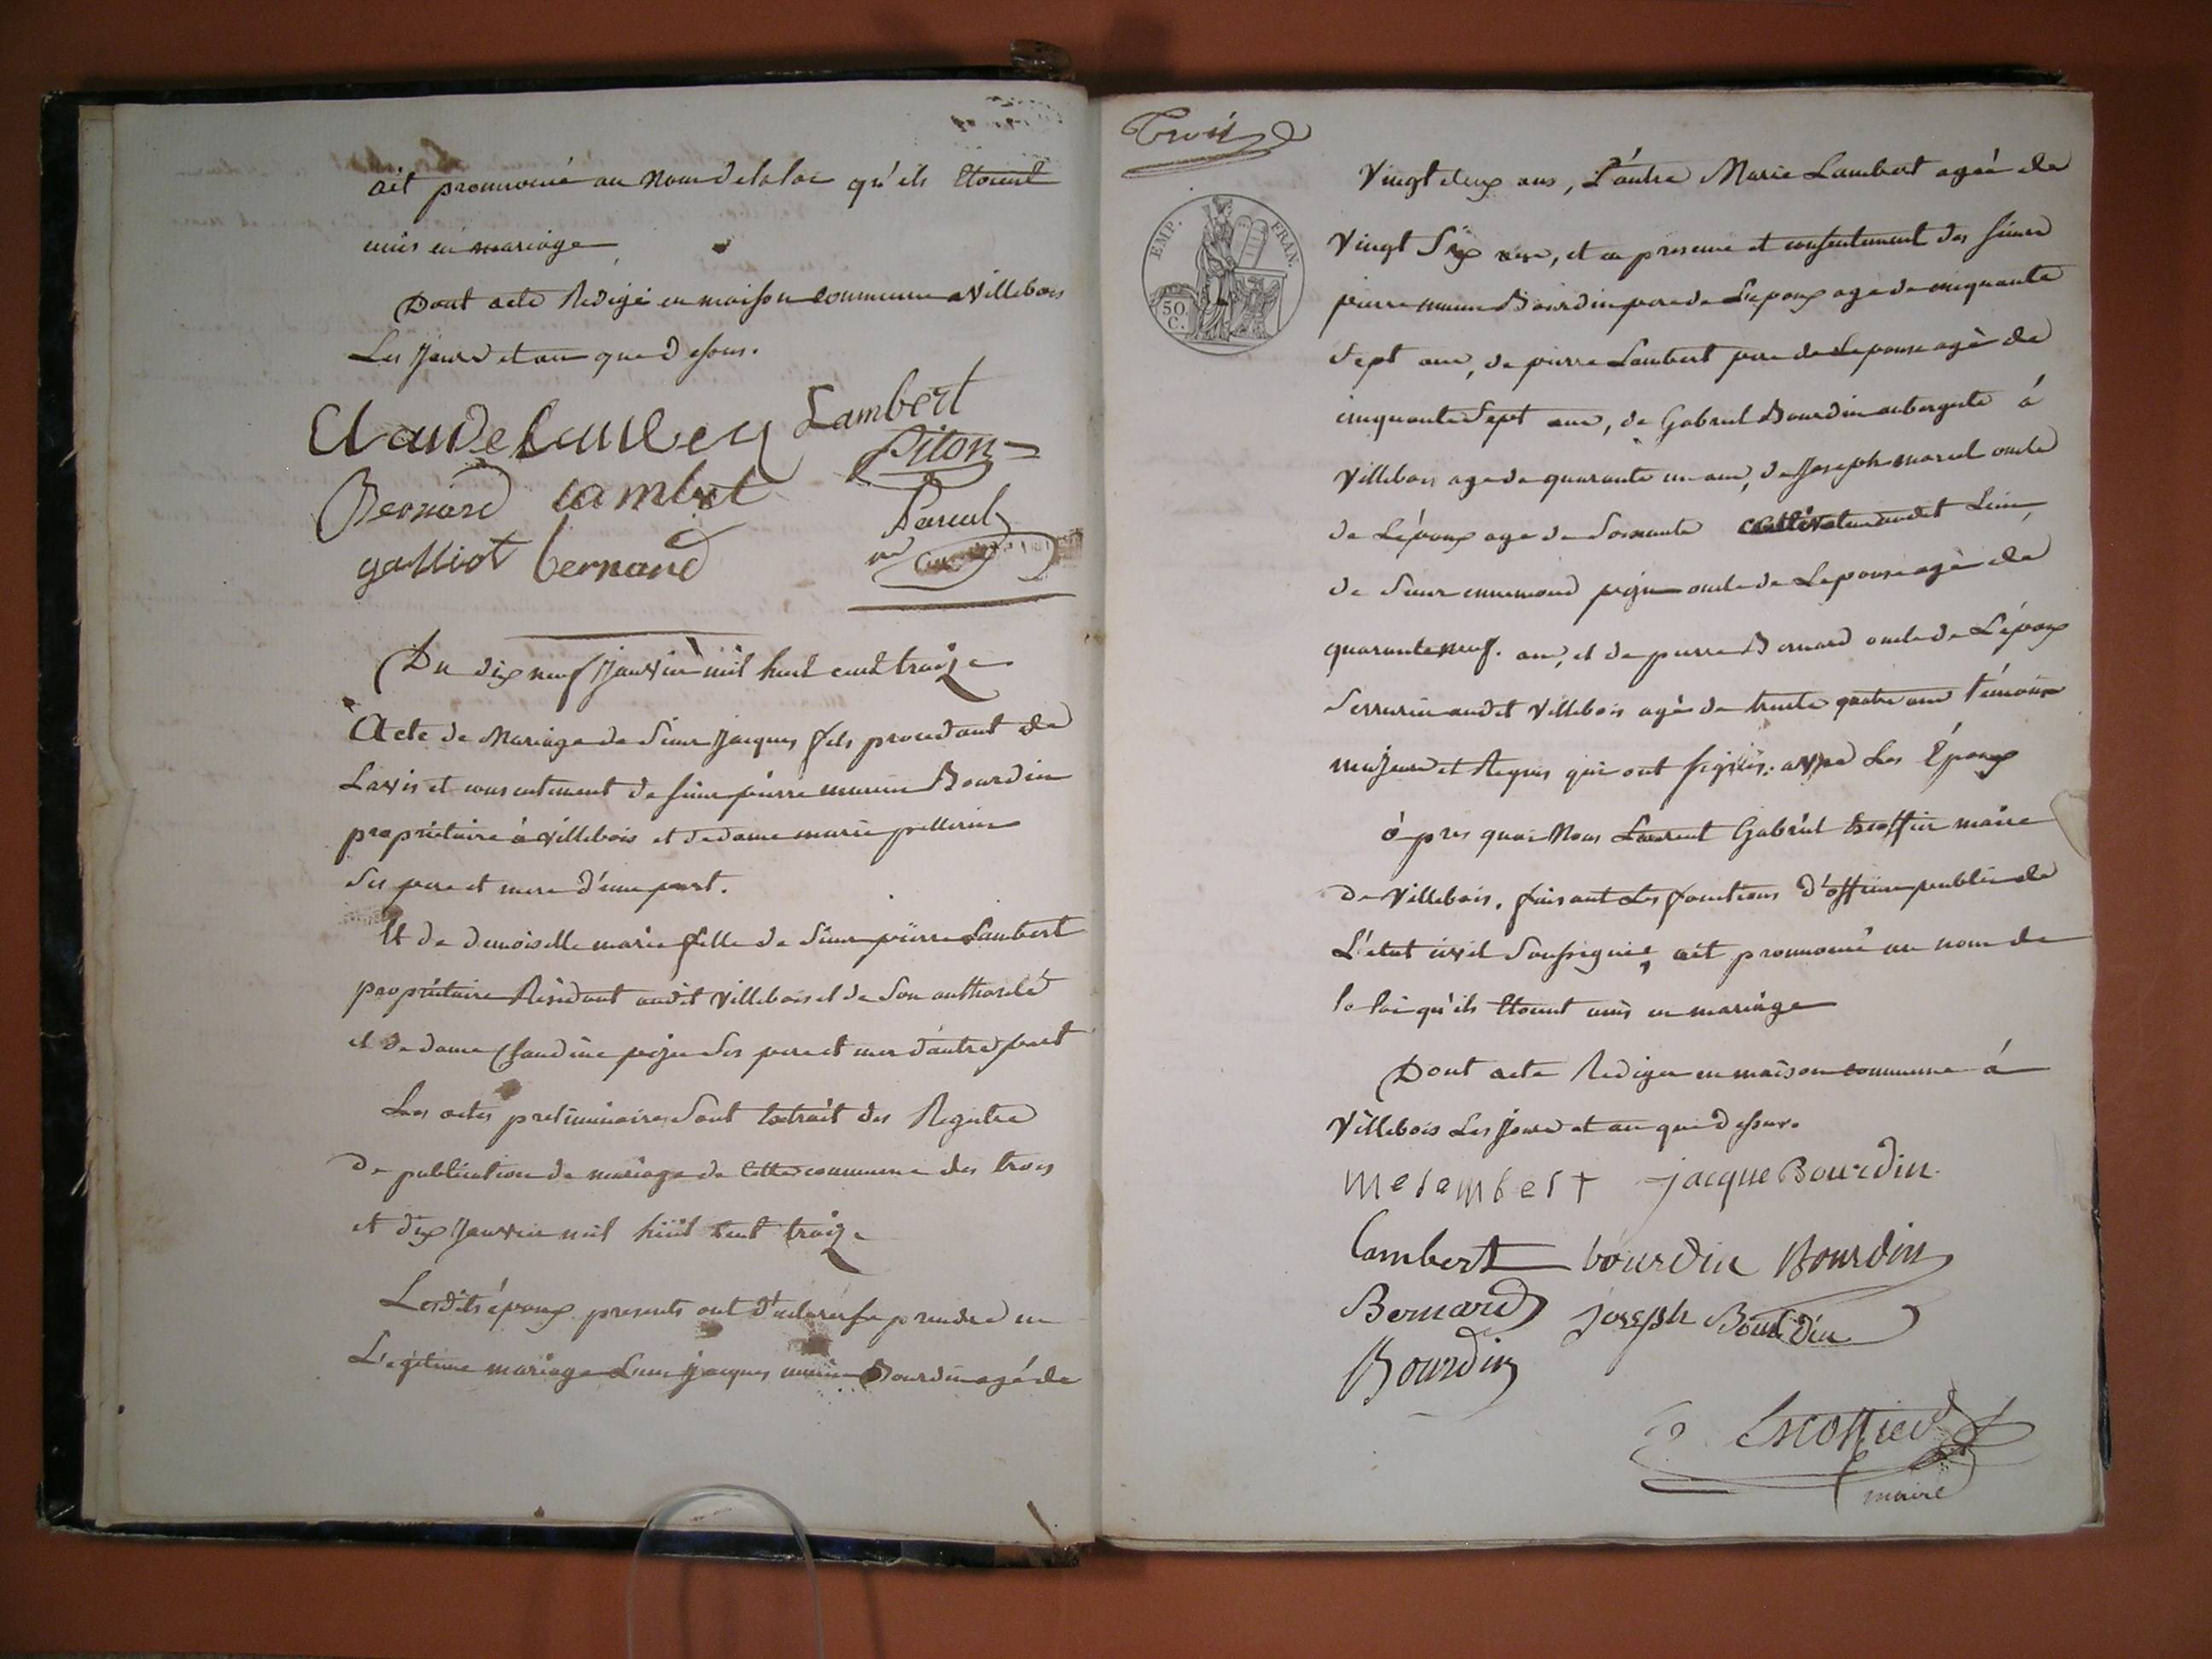 ait prononcé au nom de la loi qu'ils étoient
unis en mariage
Dont acte Redigé en maison commune a Villebois
Les Jour et an que dessus.
Lambert
Piton
Bernard Lambert
galliot bernard
Du dix neuf Janvier mil huit cent treize
Acte de Mariage de Sieur Jacques fils procedant de
Lavis et consentement de sieur pierre Bourdin
propriétaire à Villebois et de dame marie pellerin
ses pere et mere d'une part.
Et de demoiselle marie fille de Sieur pierre Lambert
propriétaire Résidant audit Villebois et de son authorité
et de dame Claudine ses pere et mere d'autre part
Les actes preliminaires sont Extrait des Registre
De publication de mariage de Cette commune des trois
et dix Janvier mil huit Cent treize
Lesdits époux presents ont déclaré se prendre en
Légitime mariage L'un jacques Bourdin agé de
Trois
EMP. FRAN.
50 C.
Vingt deux ans, L'autre Marie Lambert agée de
Vingt Six ans, et en presence et consentement des sieurs
pierre Bourdin pere de L'epoux agé de cinquante
Sept ans, de pierre Lambert pere de Lepouse agé de
cinquante Sept ans, de Gabriel Bourdin aubergiste á
Villebois agé de quarante un ans, de Joseph oncle
de L'époux agé de Soixante audit Lieu,
de Sieur oncle de Lepouse agé de
quarante neuf. ans, et de pierre Bernard oncle de L'époux
Serrurier audit Villebois agé de trente quatre ans témoins
majeurs et Requis qui ont signés. avec Les Époux
á pres quoi Nous Laurent Gabriel Escoffier maire
De Villebois, faisant Les fonctions D'officier public de
L'état civil Soussigné, ait prononcé au nom de
la loi qu'ils étoient unis en mariage
Dont acte Rediger en maison commune á
Villebois Les Jour et an que dessus.
me lambert jacque Bourdin.
Lambert bourdin Bourdin
Bernard joseph Bourdin
Bourdin
Escoffier
maire